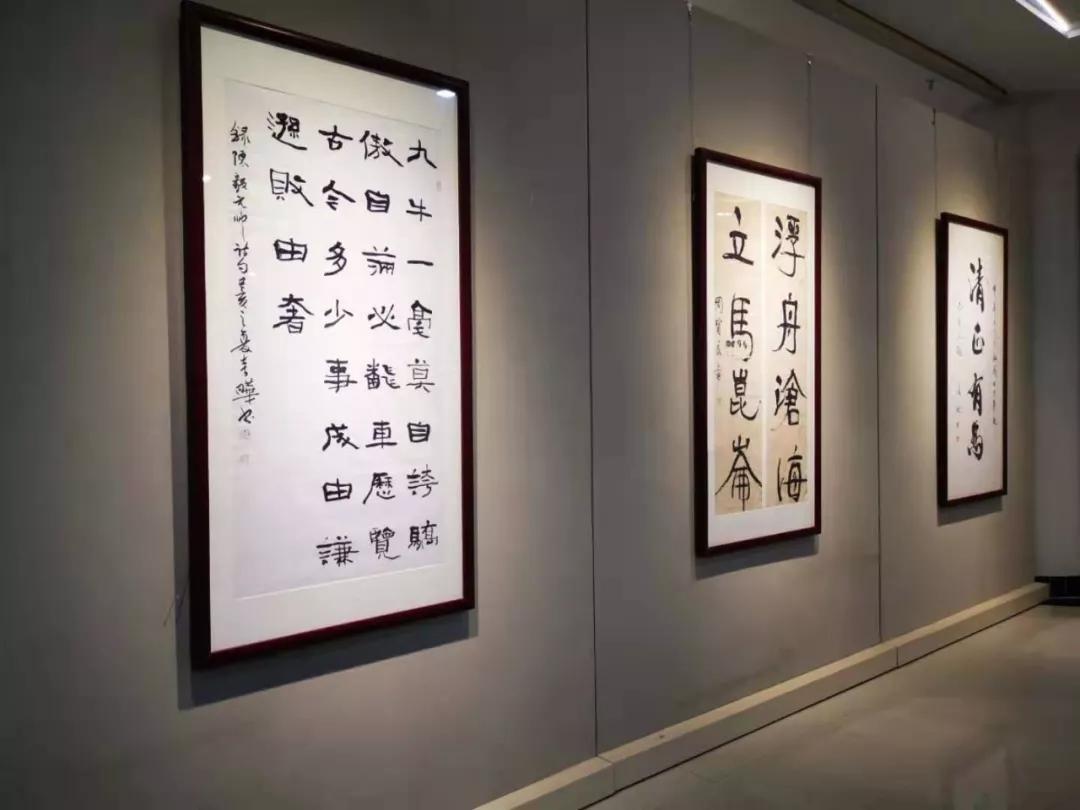 九牛一毫莫自誇驕
傲自滿必翻車歷覽
古今多少事成由謙
遜敗由奢
録陳毅元帥詩句己亥之夏
浮舟滄海
立馬崑崙
清正有為